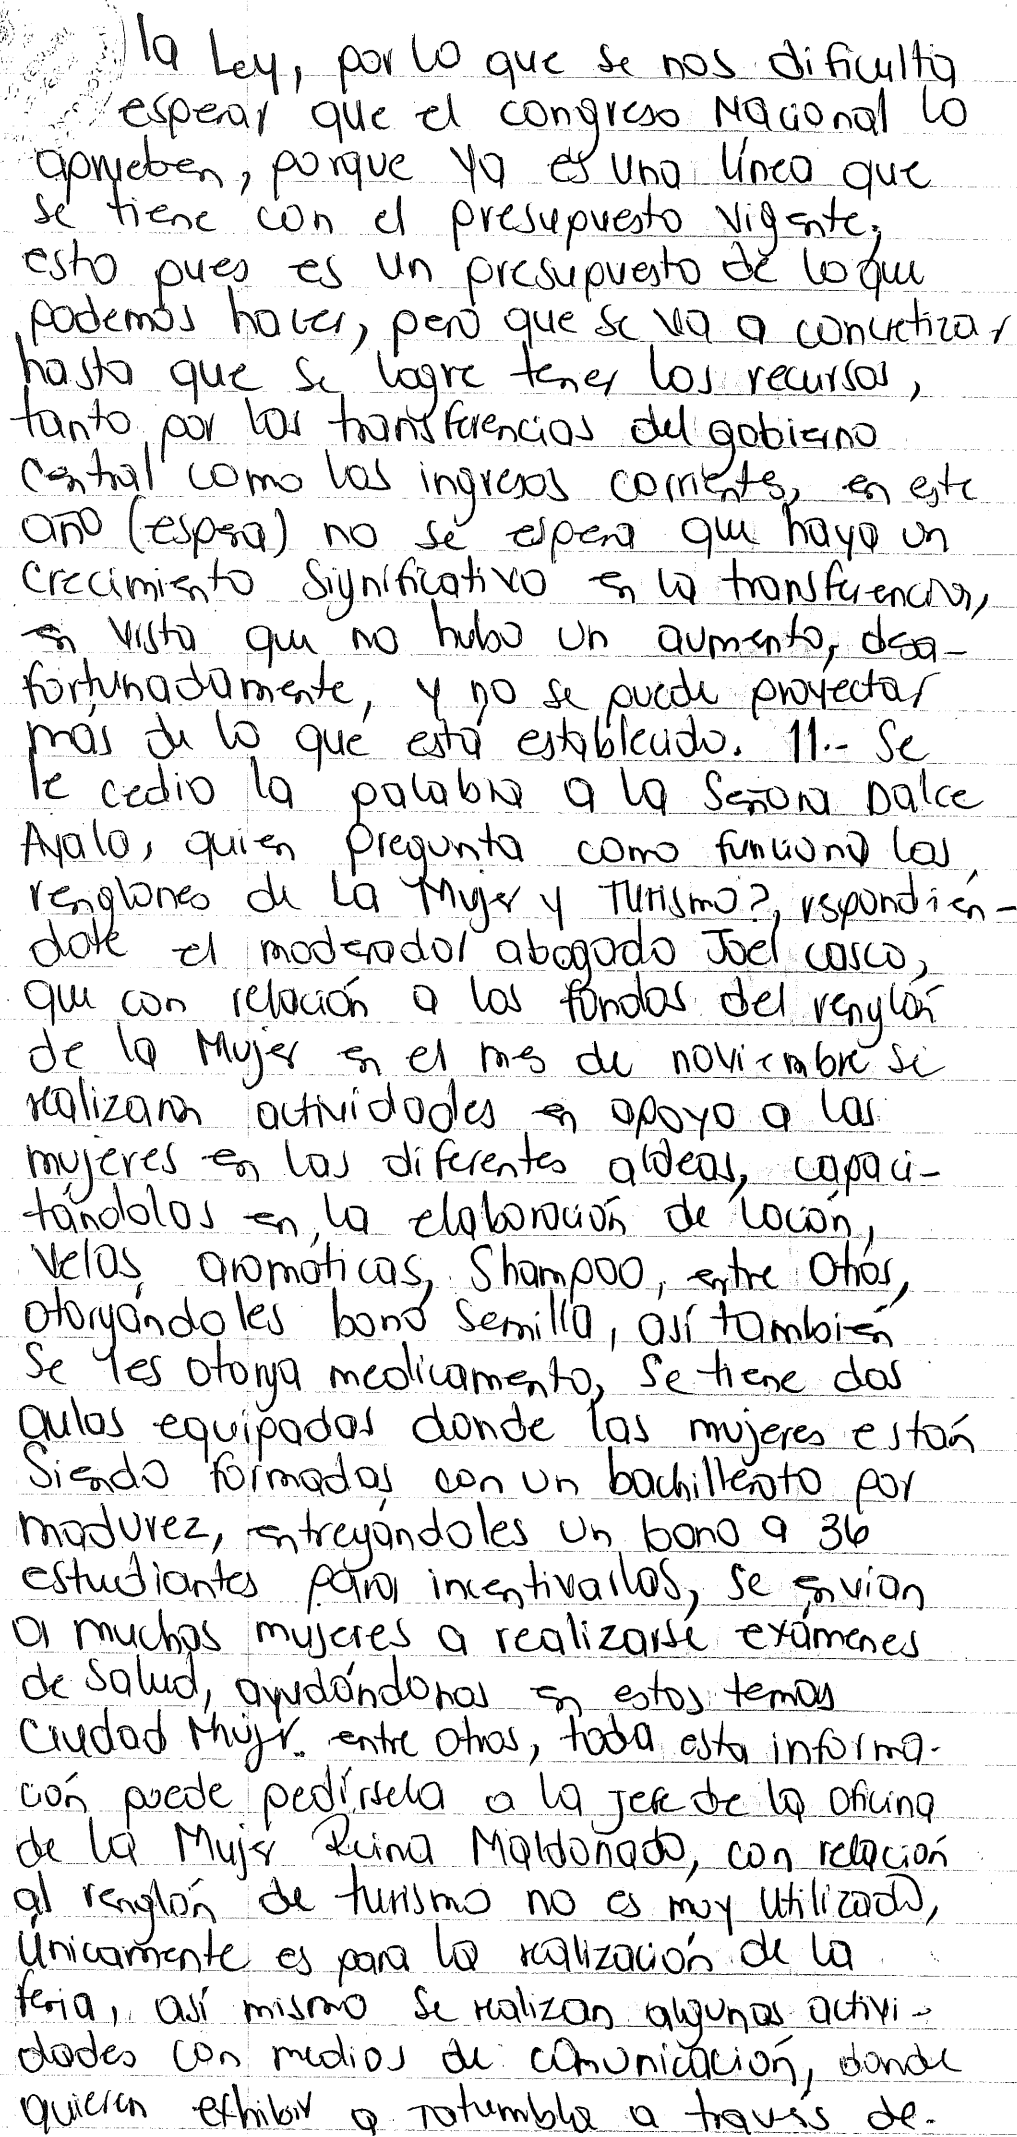 la Ley, por lo que se nos dificulta
esperar que el congreso Nacional lo
aprueben, porque ya es una línea que
se tiene con el presupuesto vigente,
esto pues es un presupuesto de lo que
podemos hacer, pero que se va a concretizar
hasta que se logre tener los recursos,
tanto por las transferencias del gobierno
Central como los ingresos corrientes, en este
año (espera) no se espera que haya un
crecimiento significativo en la transferencia,
en vista que no hubo un aumento, desa-
fortunadamente, y no se puede proyectar
más de lo que está establecido. 11.- Se
le cedio la palabra a la Señora Dalce
Ayala, quien pregunta como funciona los
renglones de La Mujer y Turismo?, respondién-
dole el moderador abogado Joel casco,
que con relación a los fondos del renglón
de la Mujer en el mes de noviembre se
realizaran actividades en apoyo a las
mujeres en las diferentes aldeas, capaci-
tándolas en la elaboración de loción,
velas aromáticas, Shampoo, entre otros,
otorgándoles bono semilla, así también
se les otorga medicamento, se tiene dos
aulas equipadas donde las mujeres están
Siendo formadas con un bachillerato por
madurez, entregándoles un bono a 36
estudiantes para incentivarlos, se envian
a muchas mujeres a realizarse exámenes
de salud, ayudándonos en estos temas
Ciudad Mujer. entre otros, toda esta informa-
ción puede pedírsela a la jefe de la oficina
de la Mujer Reina Maldonado, con relación
al renglón de turismo no es muy utilizado,
únicamente es para la realización de la
feria, así mismo se realizan algunas activi-
dades con medios de comunicación, donde
quieren exhibir a Tatumbla a través de.